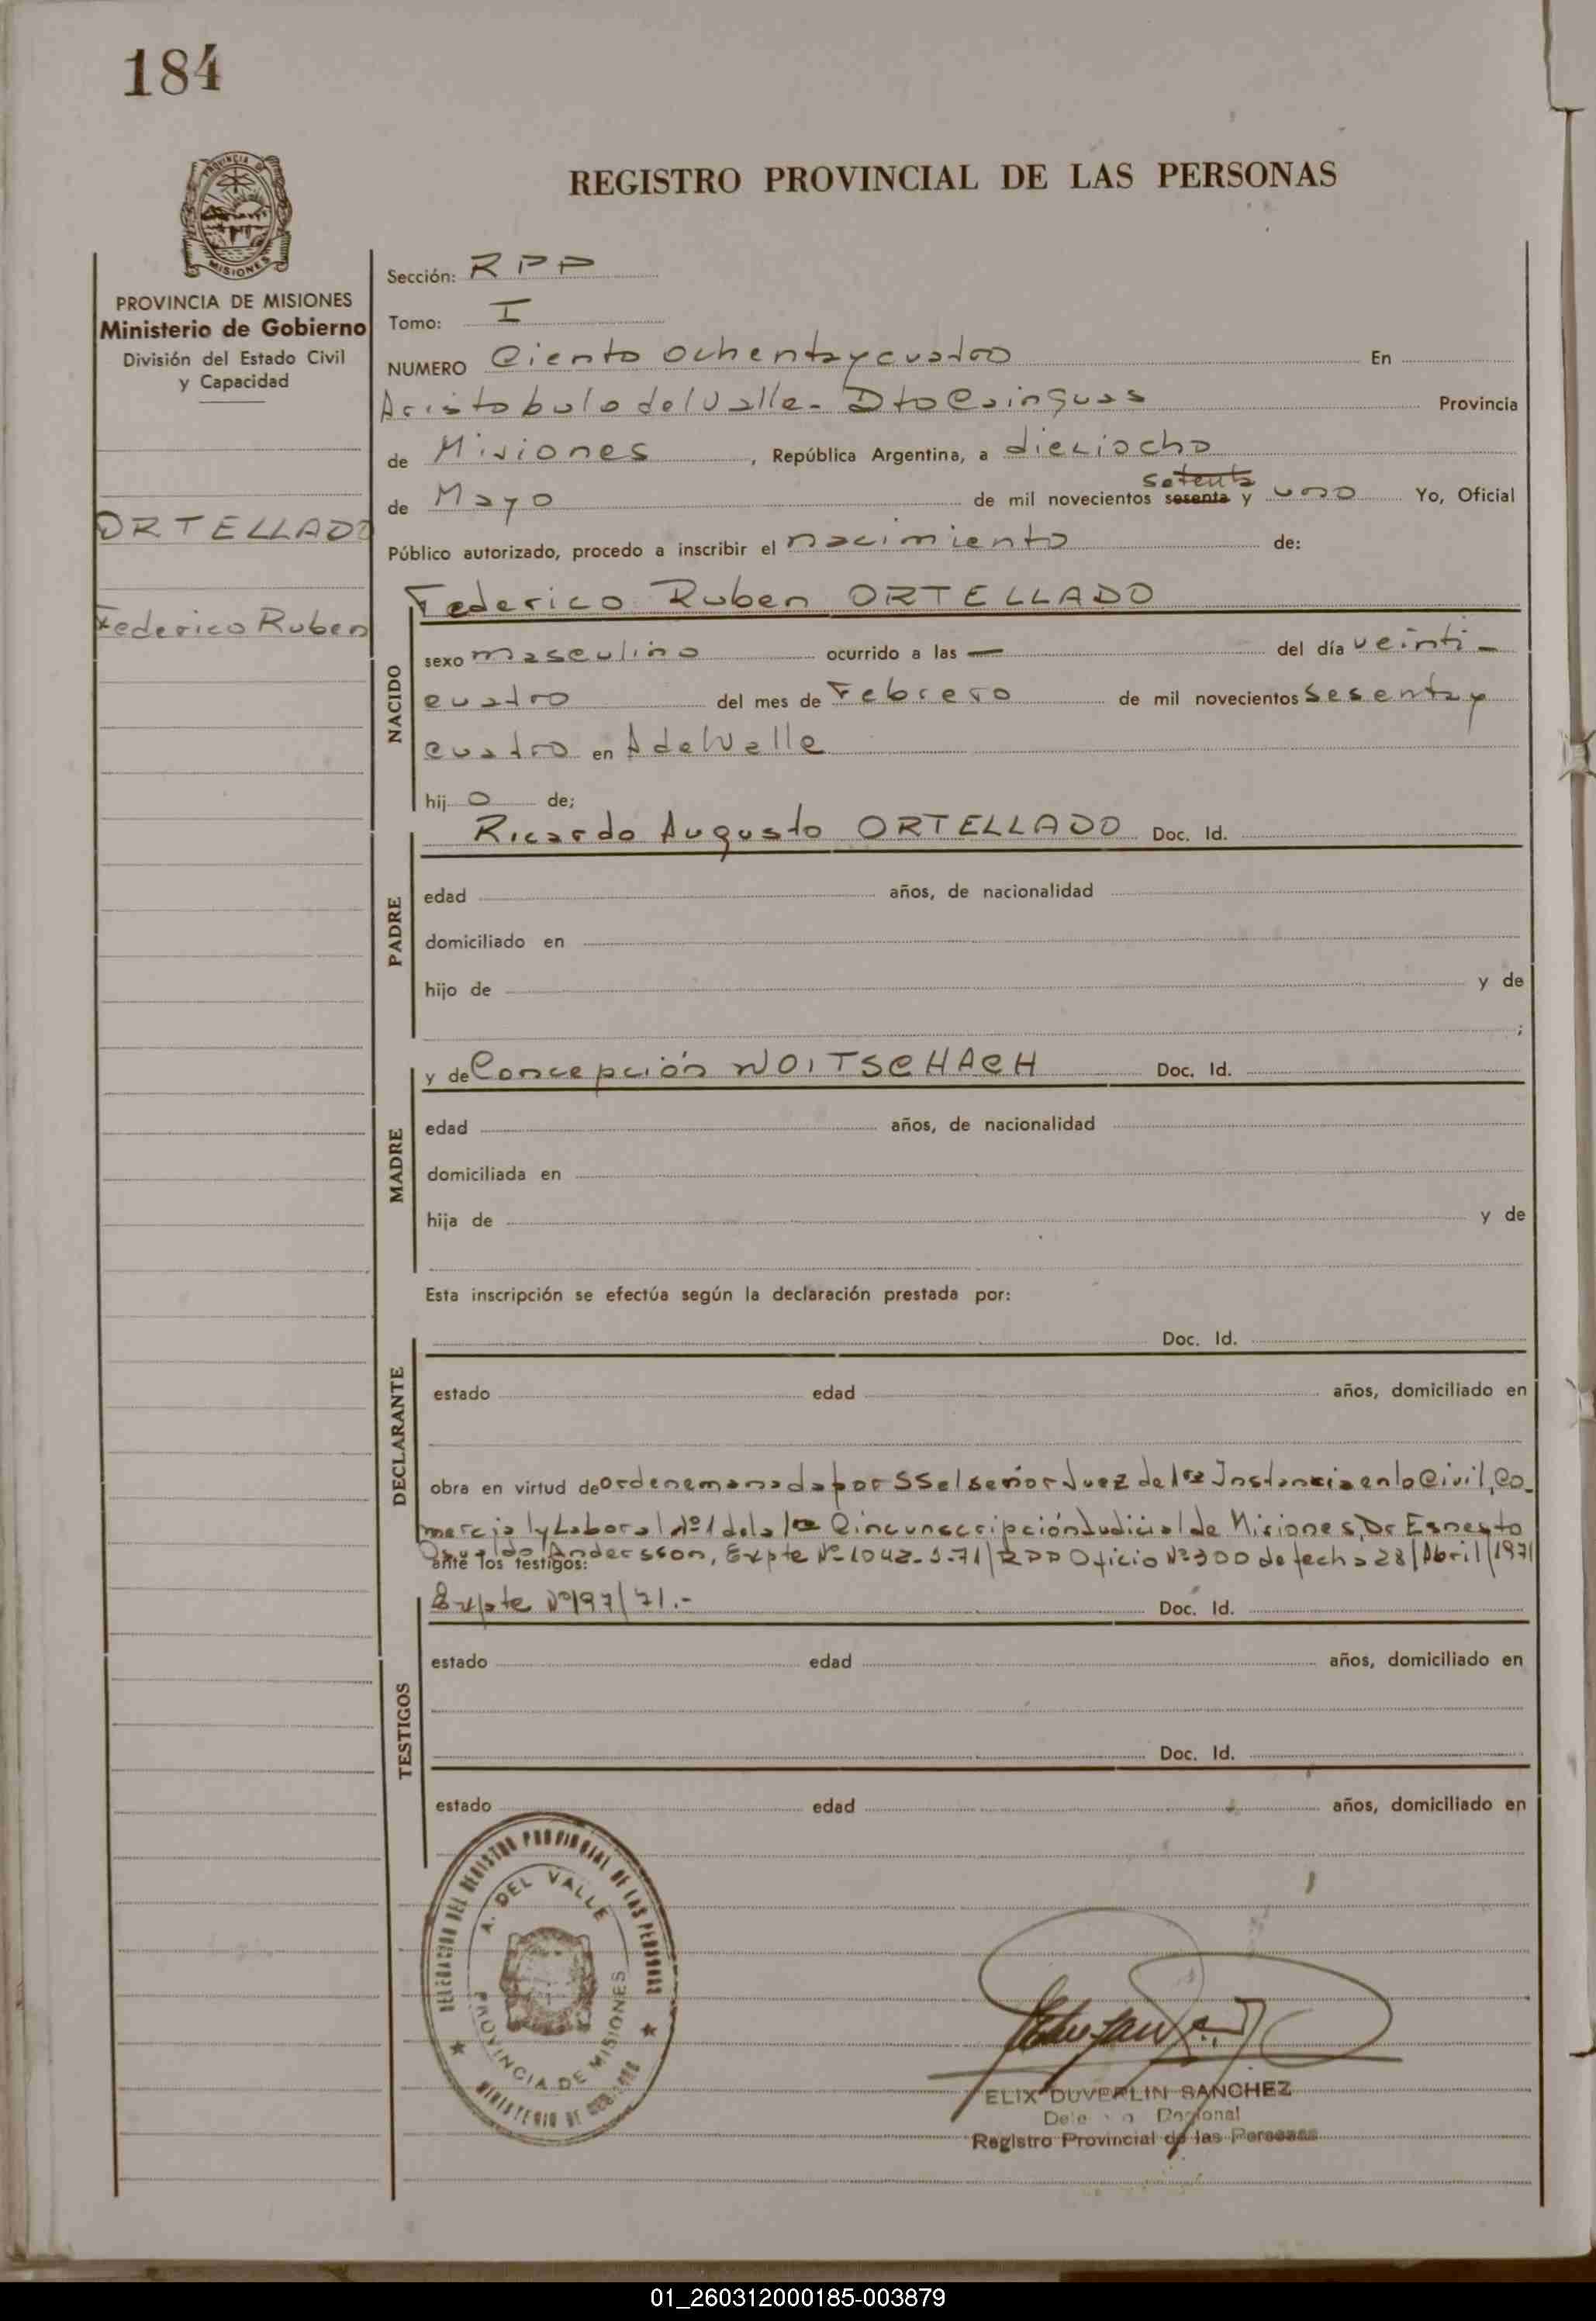 184
PROVINCIA DE
MISIONES
REGISTRO PROVINCIAL DE LAS PERSONAS
PROVINCIA DE MISIONES
Ministerio de Gobierno
División del Estado Civil
y Capacidad
ORTELLADO
Federico Ruben
Sección: RPP
Tomo: I
NUMERO Ciento ochenta y cuatro En
Aristobulo del Valle - Dto Cainguas Provincia
de Misiones, República Argentina, a dieciocho
setenta
de Mayo de mil novecientos sesenta y uno Yo, Oficial
Público autorizado, procedo a inscribir el nacimiento de:
NACIDO
Federico Ruben ORTELLADO
sexo masculino ocurrido a las — del día veinti-
cuatro del mes de Febrero de mil novecientos Sesenta y
cuatro en A del Valle
hij o de;
PADRE
Ricardo Augusto ORTELLADO Doc. Id.
edad años, de nacionalidad
domiciliado en
hijo de y de
;
MADRE
y de Concepción WOITSCHACH Doc. Id.
edad años, de nacionalidad
domiciliada en
hija de y de
Esta inscripción se efectúa según la declaración prestada por:
DECLARANTE
Doc. Id.
estado edad años, domiciliado en
obra en virtud de orden emanada por SS el señor Juez de 1ra Instancia en lo Civil, Co-
mercial y Laboral Nº 1 de la 1ra Cincunscripción Judicial de Misiones, Dr Esnesto
Osvaldo Andersson, Expte Nº 1042-S-71/RPP Oficio Nº 300 de fecha 28/Abril/1971
ante los testigos:
TESTIGOS
Expte Nº 197/71.- Doc. Id.
estado edad años, domiciliado en
Doc. Id.
estado edad años, domiciliado en
DELEGACION DEL REGISTRO PROVINCIAL DE LAS PERSONAS
A. DEL VALLE
PROVINCIA DE MISIONES
MINISTERIO DE GOBIERNO
ELIX DUVERLIN SANCHEZ
Registro Provincial de las Personas
01_260312000185-003879